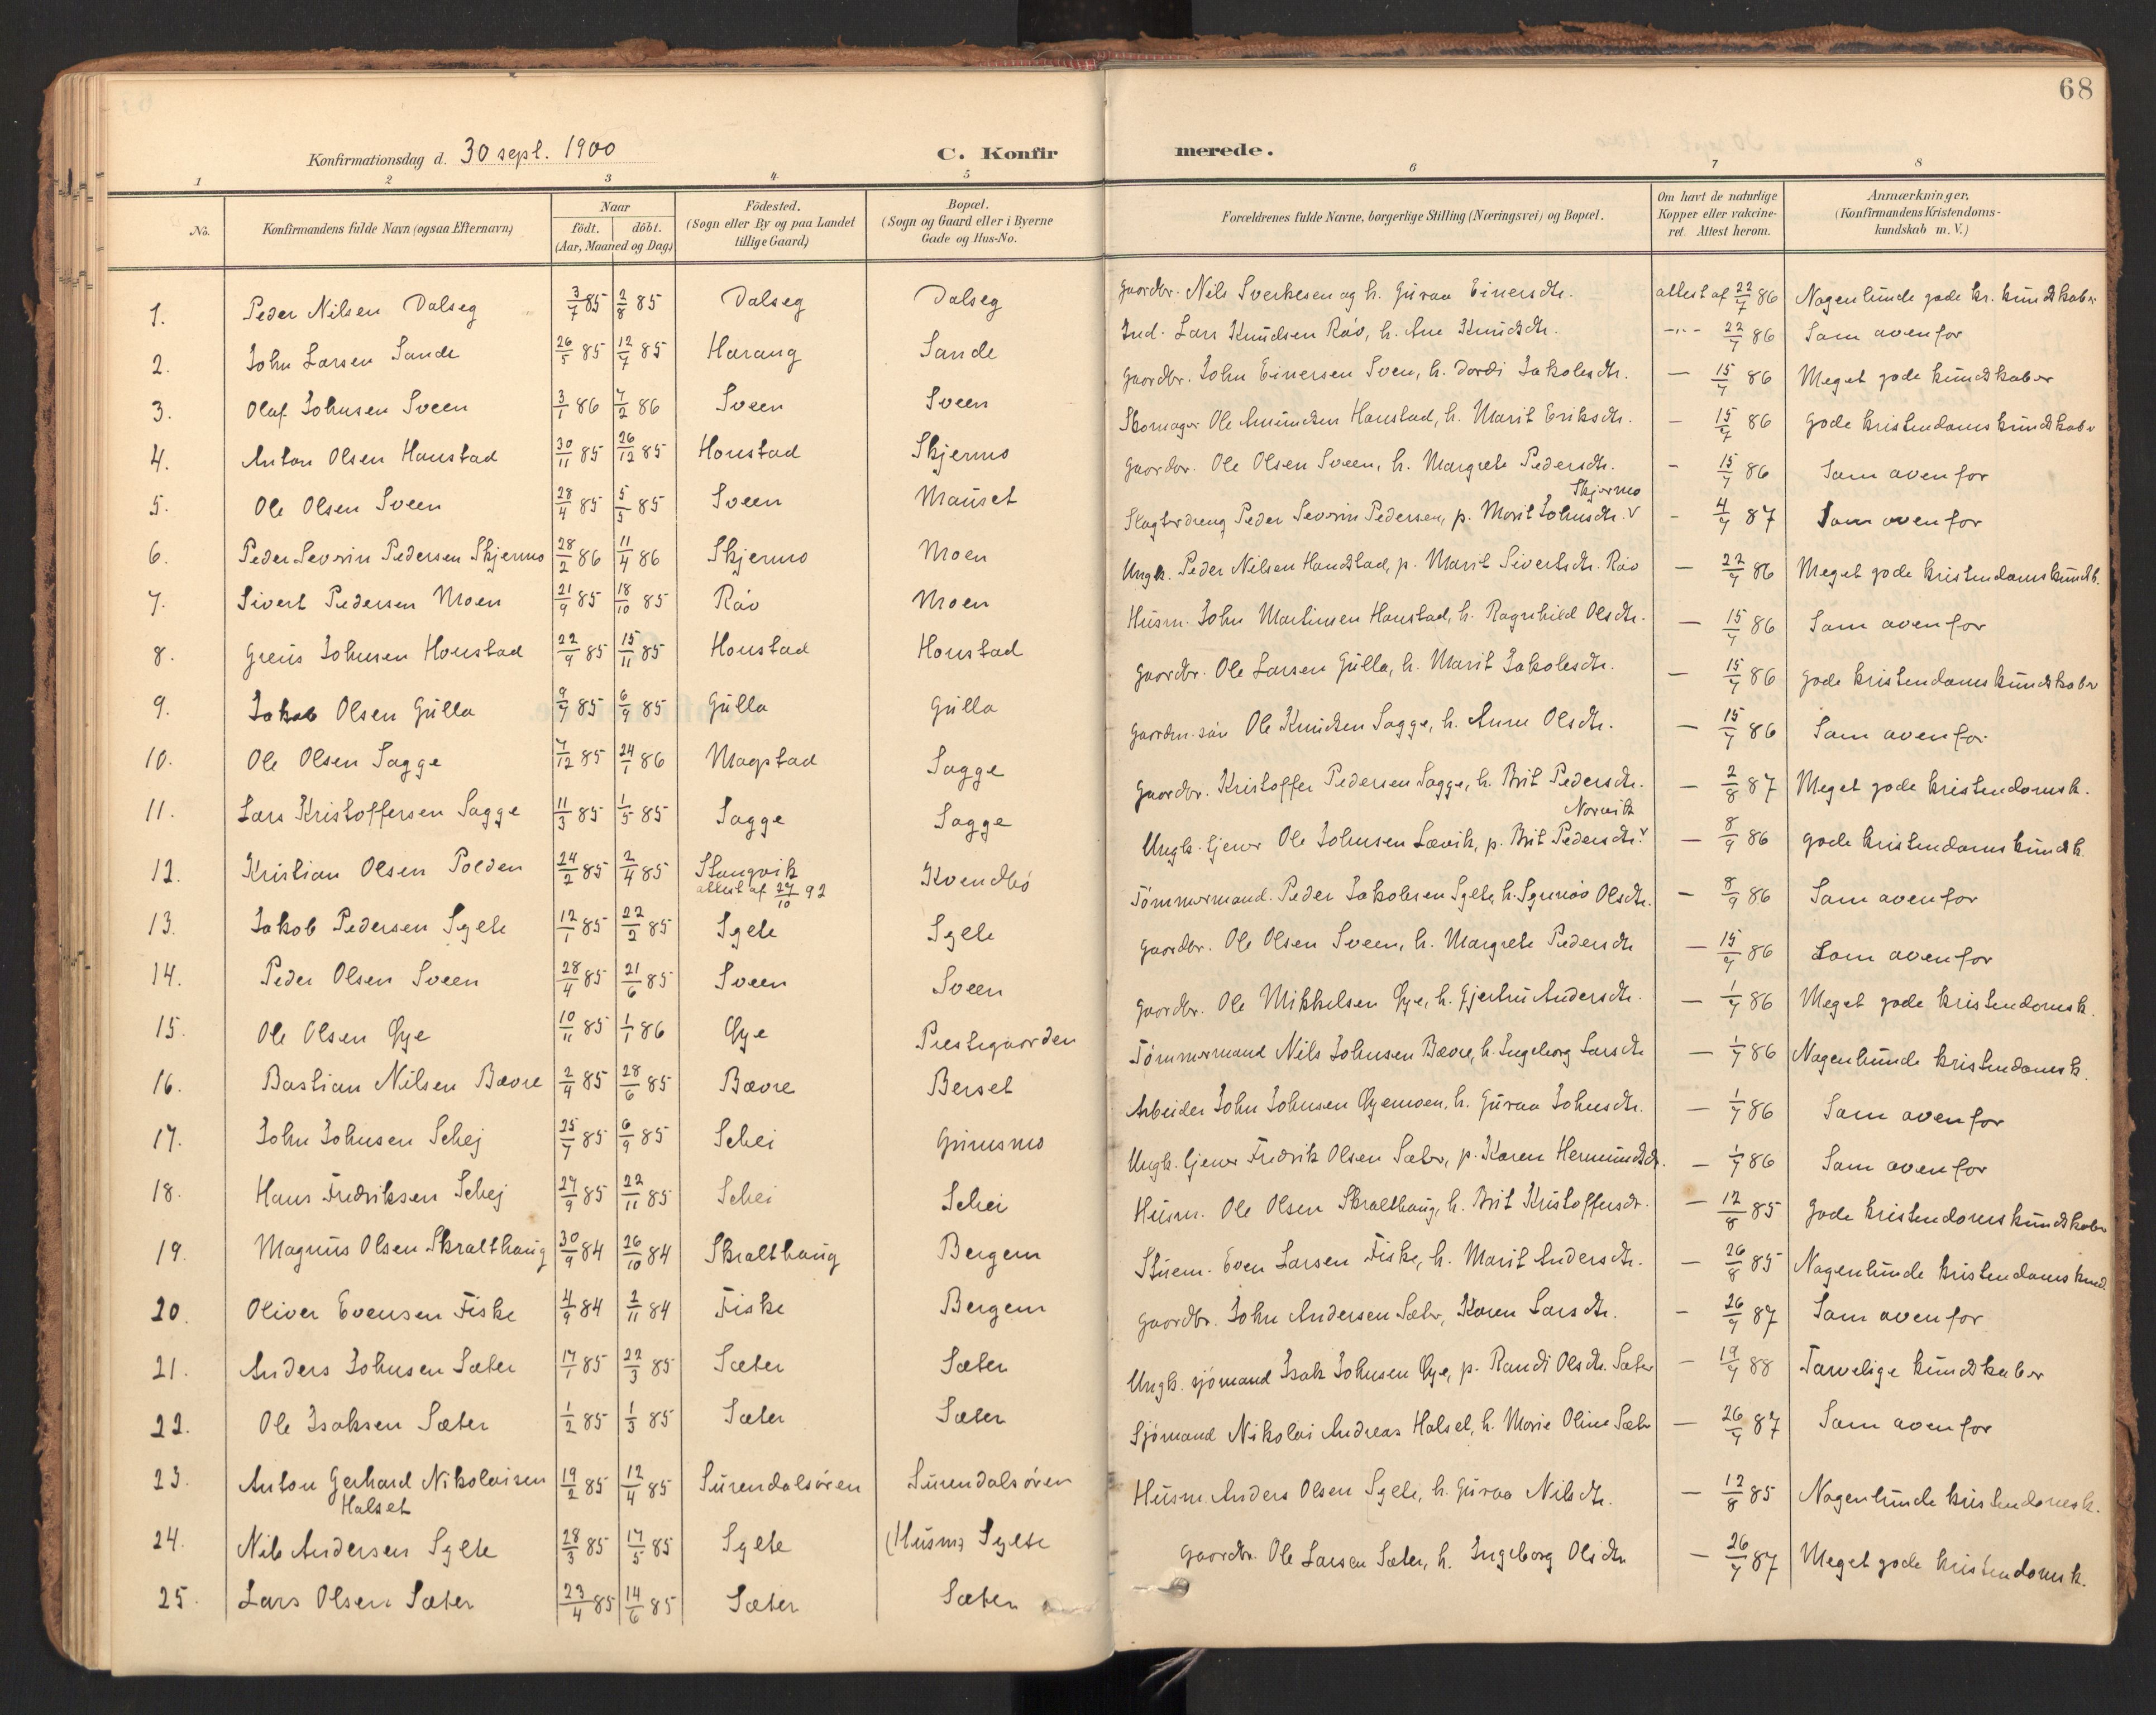 68
Konfirmationsdag d. 30 sept. 1900 C. Konfirmerede.
1 2 3 4 5 6 7 8
No. Konfirmandens fulde Navn (ogsaa Efternavn) Naar födt. döbt. (Aar, Maaned og Dag) Födested. (Sogn eller By og paa Landet tillige Gaard) Bopæl. (Sogn og Gaard eller i Byerne Gade og Hus-No. Forældrenes fulde Navne, borgerlige Stilling (Næringsvei) og Bopæl. Om havt de naturlige Kopper eller vakcineret. Attest herom. Anmærkninger. (Konfirmandens Kristendomskundskab m. V.)
1. Peder Nilsen Dalseg 3/7 85 2/8 85 Dalseg Dalseg Gaardbr. Nils Sverkesen og h. Guraa Einersdtr. attest af 22/7 86 Nogenlunde gode kr. kundskaber
2. John Larsen Sande 26/5 85 12/7 85 Harang Sande Ind. Lars Knudsen Røv, h. Ane Knudsdtr. -"- 22/7 86 Som ovenfor
3. Olaf Johnsen Sveen 3/1 86 7/2 86 Sveen Sveen Gaardbr. John Einersen Sven, h. Dordi Jakobsdtr. — 15/7 86 Meget gode kundskaber
4. Anton Olsen Honstad 30/11 85 26/12 85 Honstad Skjermo Skomager Ole Amundsen Honstad, h. Marit Eriksdtr. — 15/7 86 Gode kristendomskundskaber
5. Ole Olsen Sveen 28/4 85 5/5 85 Sveen Mauset Gaardbr. Ole Olsen Sveen, h. Margrete Pedersdtr. - 15/7 86 Som ovenfor
6. Peder Severin Pedersen Skjermo 28/2 86 11/4 86 Skjermo Moen Slagterdreng Peder Severin Pedersen, p. Marit Johnsdtr. v Skjermo - 4/7 87 Som ovenfor
7. Sivert Pedersen Moen 21/9 85 18/10 85 Røv Moen Ungk. Peder Nilsen Honstad, p. Marit Sivertsdtr. Røv — 22/7 86 Meget gode kristendomskundsk.
8. Greus Johnsen Honstad 22/9 85 15/11 85 Honstad Honstad Husm. John Martinsen Honstad, h. Ragnhild Olsdtr. — 15/7 86 Som ovenfor
9. Jakob Olsen Gulla 9/7 85 6/9 85 Gulla Gulla Gaardbr. Ole Larsen Gulla, h. Marit Jakobsdtr. — 15/7 86 Gode kristendomskundskaber
10. Ole Olsen Sagge 7/12 85 24/1 86 Mogstad Sagge Gaardm. søn Ole Knudsen Sagge, h. Anne Olsdtr. — 15/7 86 Som ovenfor
11. Lars Kristoffersen Sagge 11/3 85 1/5 85 Sagge Sagge Gaardbr. Kristoffer Pedersen Sagge, h. Brit Pedersdtr. — 2/8 87 Meget gode kristendomsk.
12. Kristian Olsen Polden 24/2 85 2/4 85 Stangvik attest af 27/10 92 Kvendbø Ungk. tjener Ole Johnsen Løvik, p. Brit Pedersdtr. v Norvik — 8/9 86 Gode kristendomskundsk.
13. Jakob Pedersen Sylte 12/1 85 22/2 85 Sylte Sylte Tömmermand Peder Jakobsen Sylte, h. Synnøv Olsdtr. — 8/9 86 Som ovenfor
14. Peder Olsen Sveen 28/4 85 21/6 85 Sveen Sveen Gaardbr. Ole Olsen Sveen, h. Margrete Pedersdtr — 15/7 86 Som ovenfor
15. Ole Olsen Øye 10/11 85 1/1 86 Øye Prestegaarden Gaardbr. Ole Mikkelsen Øye, h. Gjertru Andersdtr. — 1/7 86 Meget gode kristendomsk.
16. Bastian Nilsen Bævre 2/4 85 28/6 85 Bævre Berset Tömmermand Nils Johnsen Bævre, h. Ingeborg Larsdtr — 1/7 86 Nogenlunde kristendomsk.
17. John Johnsen Schej 25/7 85 6/9 85 Schei Grimsmo Arbeider John Johnsen Øyemoen, h. Guraa Johnsdtr. — 1/7 86 Som ovenfor
18. Hans Fredriksen Schej 27/9 85 22/11 85 Schei Schei Ungk. tjener Fredrik Olsen Sæter, p. Karen Hermundsdtr. — 1/7 86 Som ovenfor
19. Magnus Olsen Skralthaug 30/9 84 26/10 84 Skralthaug Bergem Husm. Ole Olsen Skralthaug, h. Brit Kristoffersdr. — 12/8 85 Gode kristendomskundskaber
20. Oliver Evensen Fiske 4/9 84 2/11 84 Fiske Bergem Stuem. Even Larsen Fiske, h. Marit Andersdtr. — 26/8 85 Nogenlunde kristendomskund.
21. Anders Johnsen Sæter 17/1 85 22/3 85 Sæter Sæter Gaardbr. John Andersen Sæter, Karen Larsdtr. — 26/7 87 Som ovenfor
22. Ole Isaksen Sæter 1/2 85 1/3 85 Sæter Sæter Ungk. sjömand Isak Johnsen Øye, p. Randi Olsdtr. Sæter — 19/7 88 Tarvelige kundskaber
23. Anton Gerhard Nikolaisen Halset 19/2 85 12/4 85 Surendalsören Surendalsören Sjömand Nikolai Andreas Halset, h. Marie Oline Sæter — 26/7 87 Som ovenfor
24. Nils Andersen Sylte 28/3 85 17/5 85 Sylte (Husm) Sylte Husm. Anders Olsen Sylte, h. Guraa Nilsdtr. — 12/8 85 Nogenlunde kristendomsk.
25. Lars Olsen Sæter 23/4 85 14/6 85 Sæter Sæter Gaardbr. Ole Larsen Sæter, h. Ingeborg Olsdtr — 26/7 87 Meget gode kristendomsk.